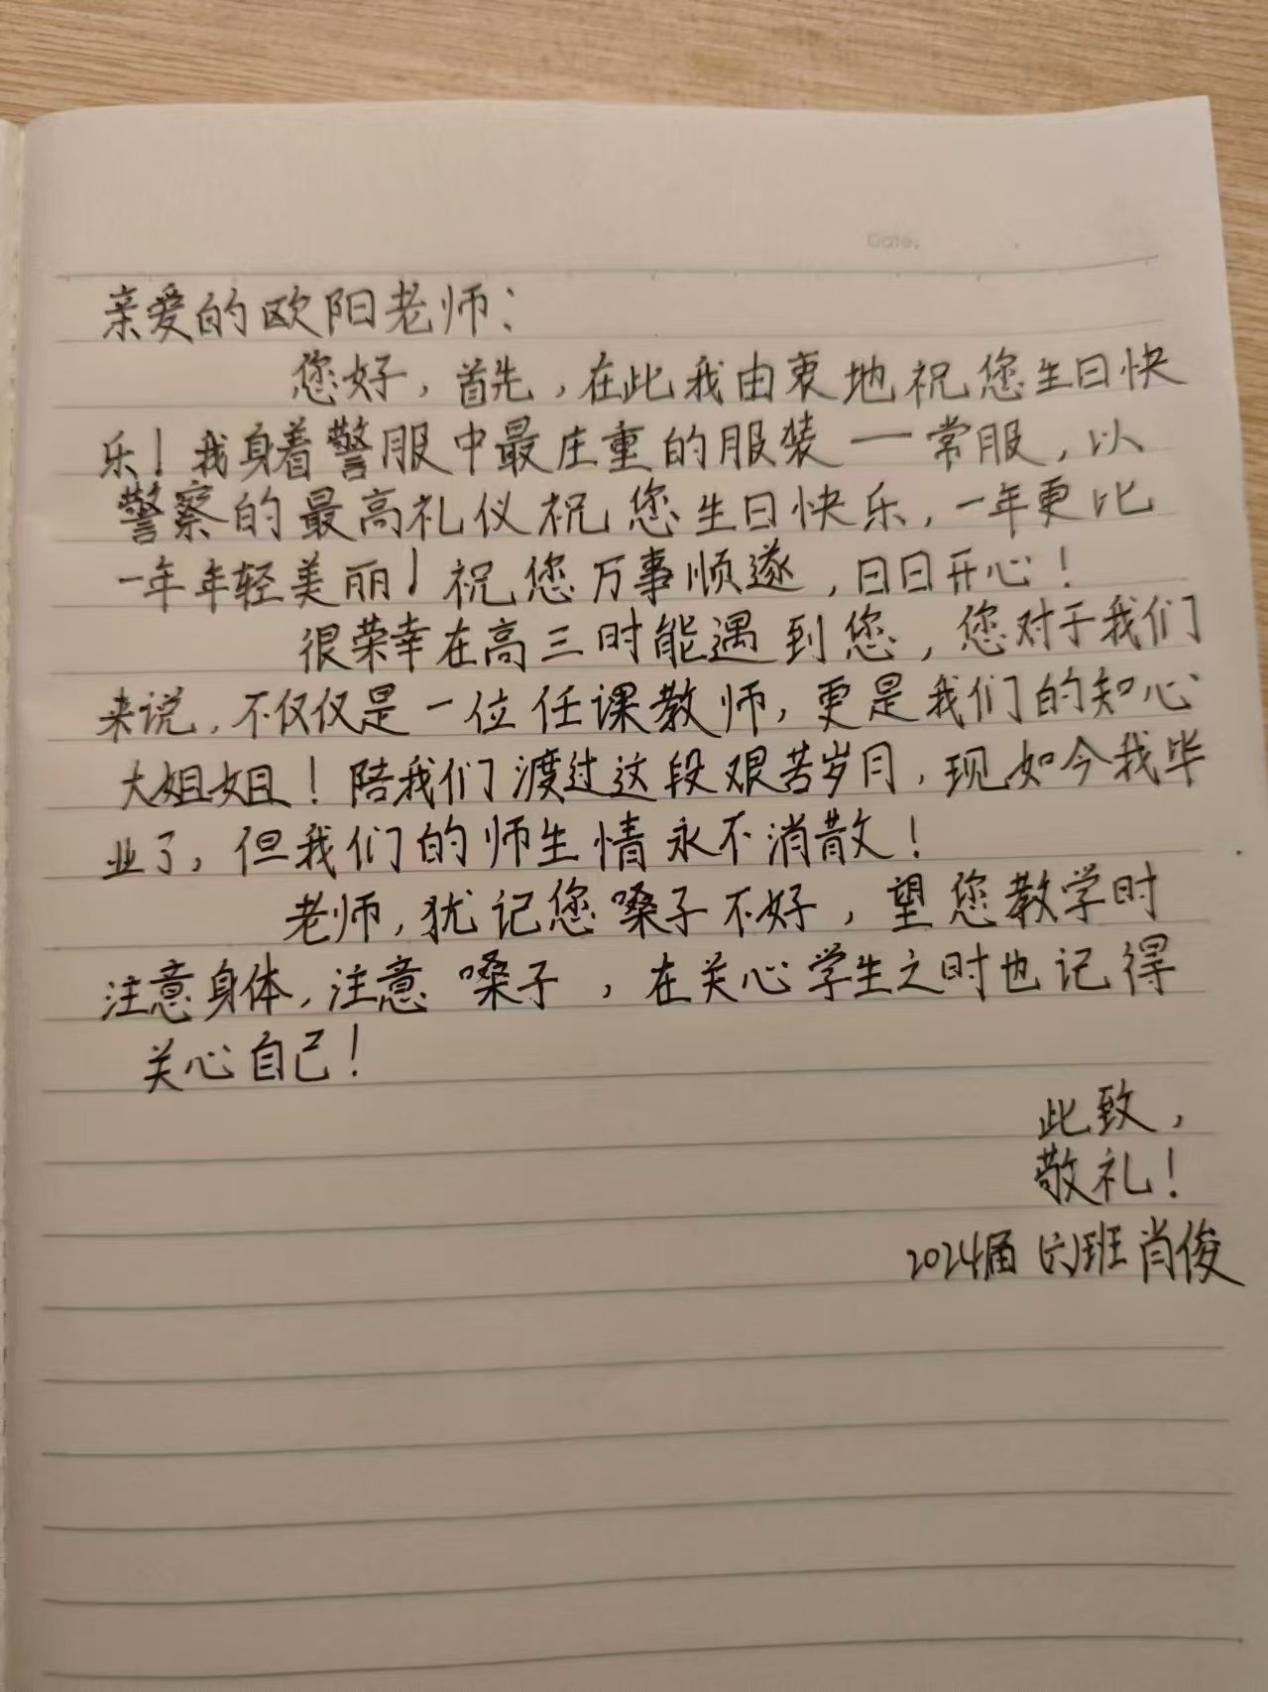 Date.
亲爱的欧阳老师:
您好,首先,在此我由衷地祝您生日快
乐!我身着警服中最庄重的服装一常服,以
警察的最高礼仪祝您生日快乐,一年更比
一年年轻美丽!祝您万事顺遂,日日开心!
很荣幸在高三时能遇到您,您对于我们
来说,不仅仅是一位任课教师,更是我们的知心
大姐姐!陪我们渡过这段艰苦岁月,现如今我毕
业了,但我们的师生情永不消散!
老师,犹记您嗓子不好,望您教学时
注意身体,注意嗓子,在关心学生之时也记得
关心自己!
此致,
敬礼!
2024届六班肖俊